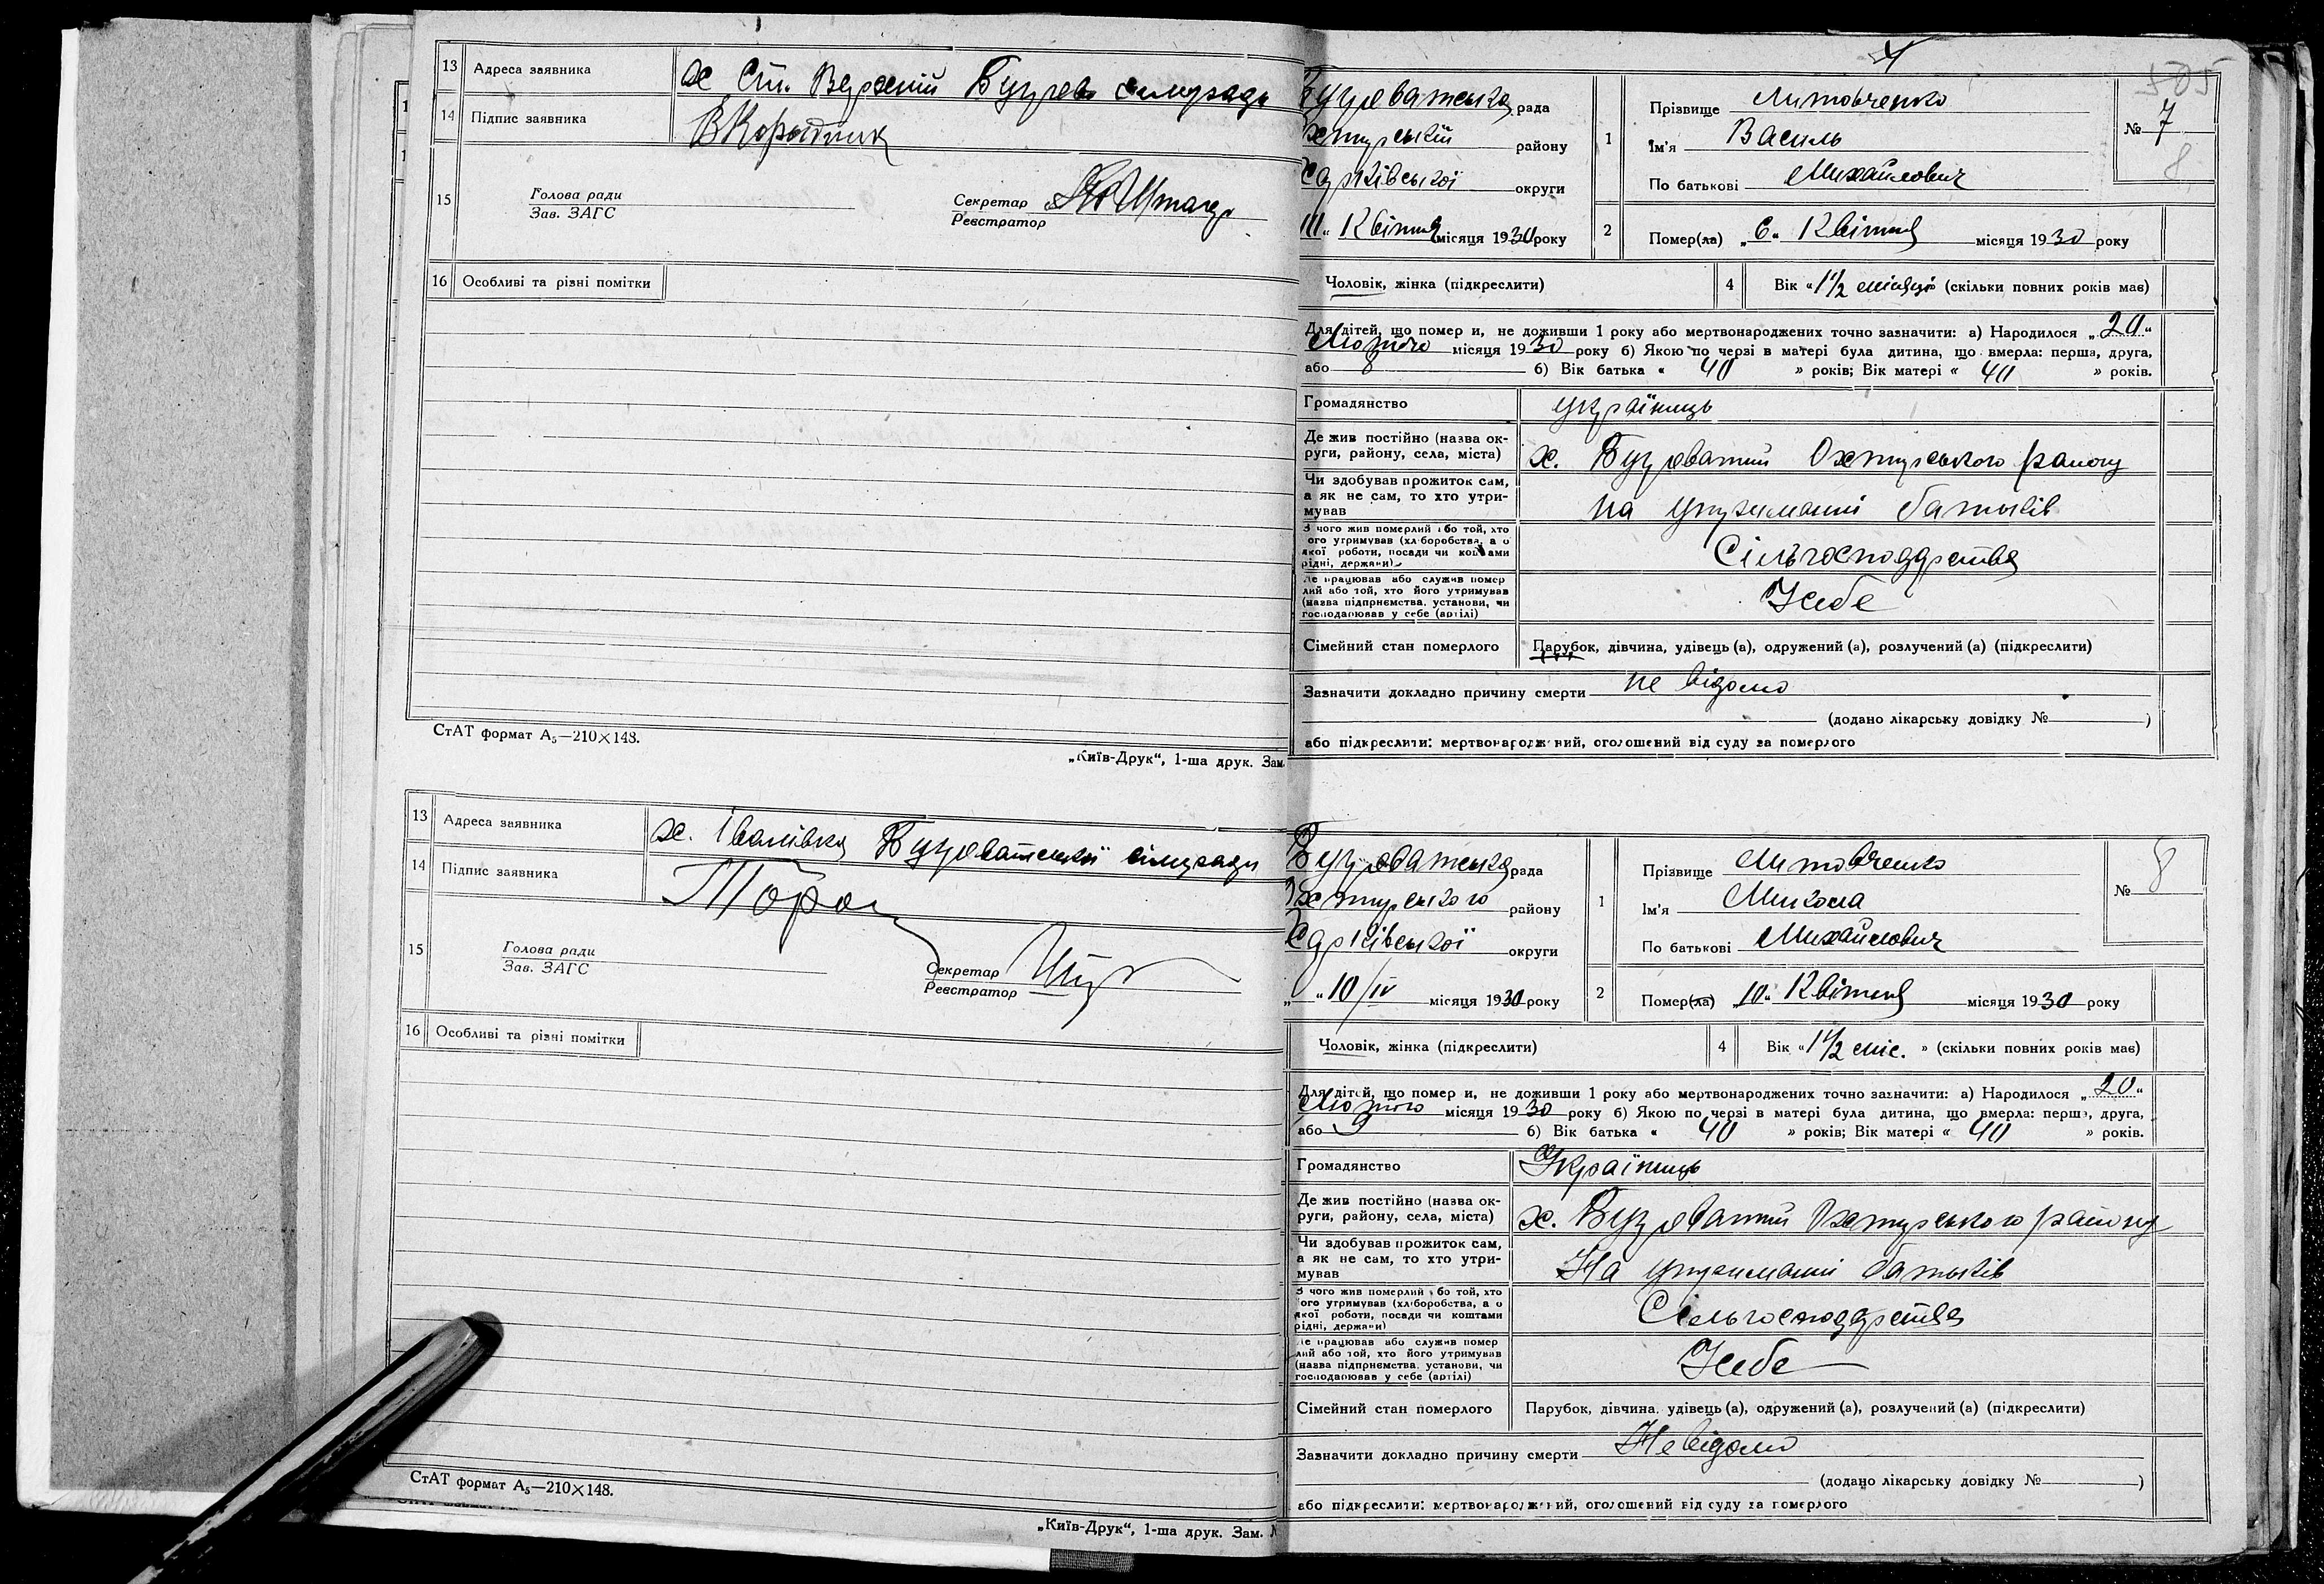 13 Адреса заявника х Ст. Верхній Бузова сільради
14 Підпис заявника
15 Голова ради
Зав. ЗАГС
Секретар
Реєстратор
16 Особливі та різні помітки
СтАТ формат А₅—210×148.
„Київ-Друк“, 1-ша друк. Зам.
13 Адреса заявника х. Іванівка Бузоватської сільради
14 Підпис заявника
15 Голова ради
Зав. ЗАГС
Секретар
Реєстратор
16 Особливі та різні помітки
СтАТ формат А₅—210×148.
„Київ-Друк“, 1-ша друк. Зам. №
505
Бузоватська рада
хтирський району
Харківської округи
Квітня місяця 1930 року
1 Прізвище Литовченко
Ім'я Василь
По батькові Михайлович
№ 7
8
2 Помер(ла) „6“ Квітня місяця 1930 року
Чоловік, жінка (підкреслити)
4 Вік «1 1/2 місяці» (скільки повних років має)
Для дітей, що помер и, не доживши 1 року або мертвонароджених точно зазначити: а) Народилося „20“
Лютого місяця 1930 року б) Якою по черзі в матері була дитина, що вмерла: перша, друга,
або 8 б) Вік батька « 40 » років; Вік матері « 40 » років.
Громадянство українець
Де жив постійно (назва округи, району, села, міста) х. Бузоватий Охтирського району
Чи здобував прожиток сам, а як не сам, то хто утримував на утриманні батьків
З чого жив померлий або той, хто його утримував (хліборобства, а о якої роботи, посади чи коштами рідні, держави) Сільгосподарства
Де працював або служив помер лий або той, хто його утримував (назва підприємства, установи, чи господарював у себе (артілі) У себе
Сімейний стан померлого Парубок, дівчина, удівець (а), одружений (а), розлучений (а) (підкреслити)
Зазначити докладно причину смерти не відомо
(додано лікарську довідку № )
або підкреслити: мертвонароджений, оголошений від суду за померлого
Бузоватська рада
Охтирського району
Харківської округи
„ “ 10/IV місяця 1930 року
1 Прізвище Литовченко
Ім'я Микола
По батькові Михайлович
№ 8
2 Помер(ла) „10“ Квітня місяця 1930 року
Чоловік, жінка (підкреслити)
4 Вік «1 1/2 міс. » (скільки повних років має)
Для дітей, що помер и, не доживши 1 року або мертвонароджених точно зазначити: а) Народилося „20“
Лютого місяця 1930 року б) Якою по черзі в матері була дитина, що вмерла: перша, друга,
або 9 б) Вік батька « 40 » років; Вік матері « 40 » років.
Громадянство Українець
Де жив постійно (назва округи, району, села, міста) х. Бузоватий Охтирського району
Чи здобував прожиток сам, а як не сам, то хто утримував На утриманні батьків
З чого жив померлий або той, хто його утримував (хліборобства, а о якої роботи, посади чи коштами рідні, держави) Сільгосподарства
Де працював або служив помер лий або той, хто його утримував (назва підприємства, установи, чи господарював у себе (артілі) У себе
Сімейний стан померлого Парубок, дівчина, удівець (а), одружений (а), розлучений (а) (підкреслити)
Зазначити докладно причину смерти Не відомо
(додано лікарську довідку № )
або підкреслити: мертвонароджений, оголошений від суду за померлого